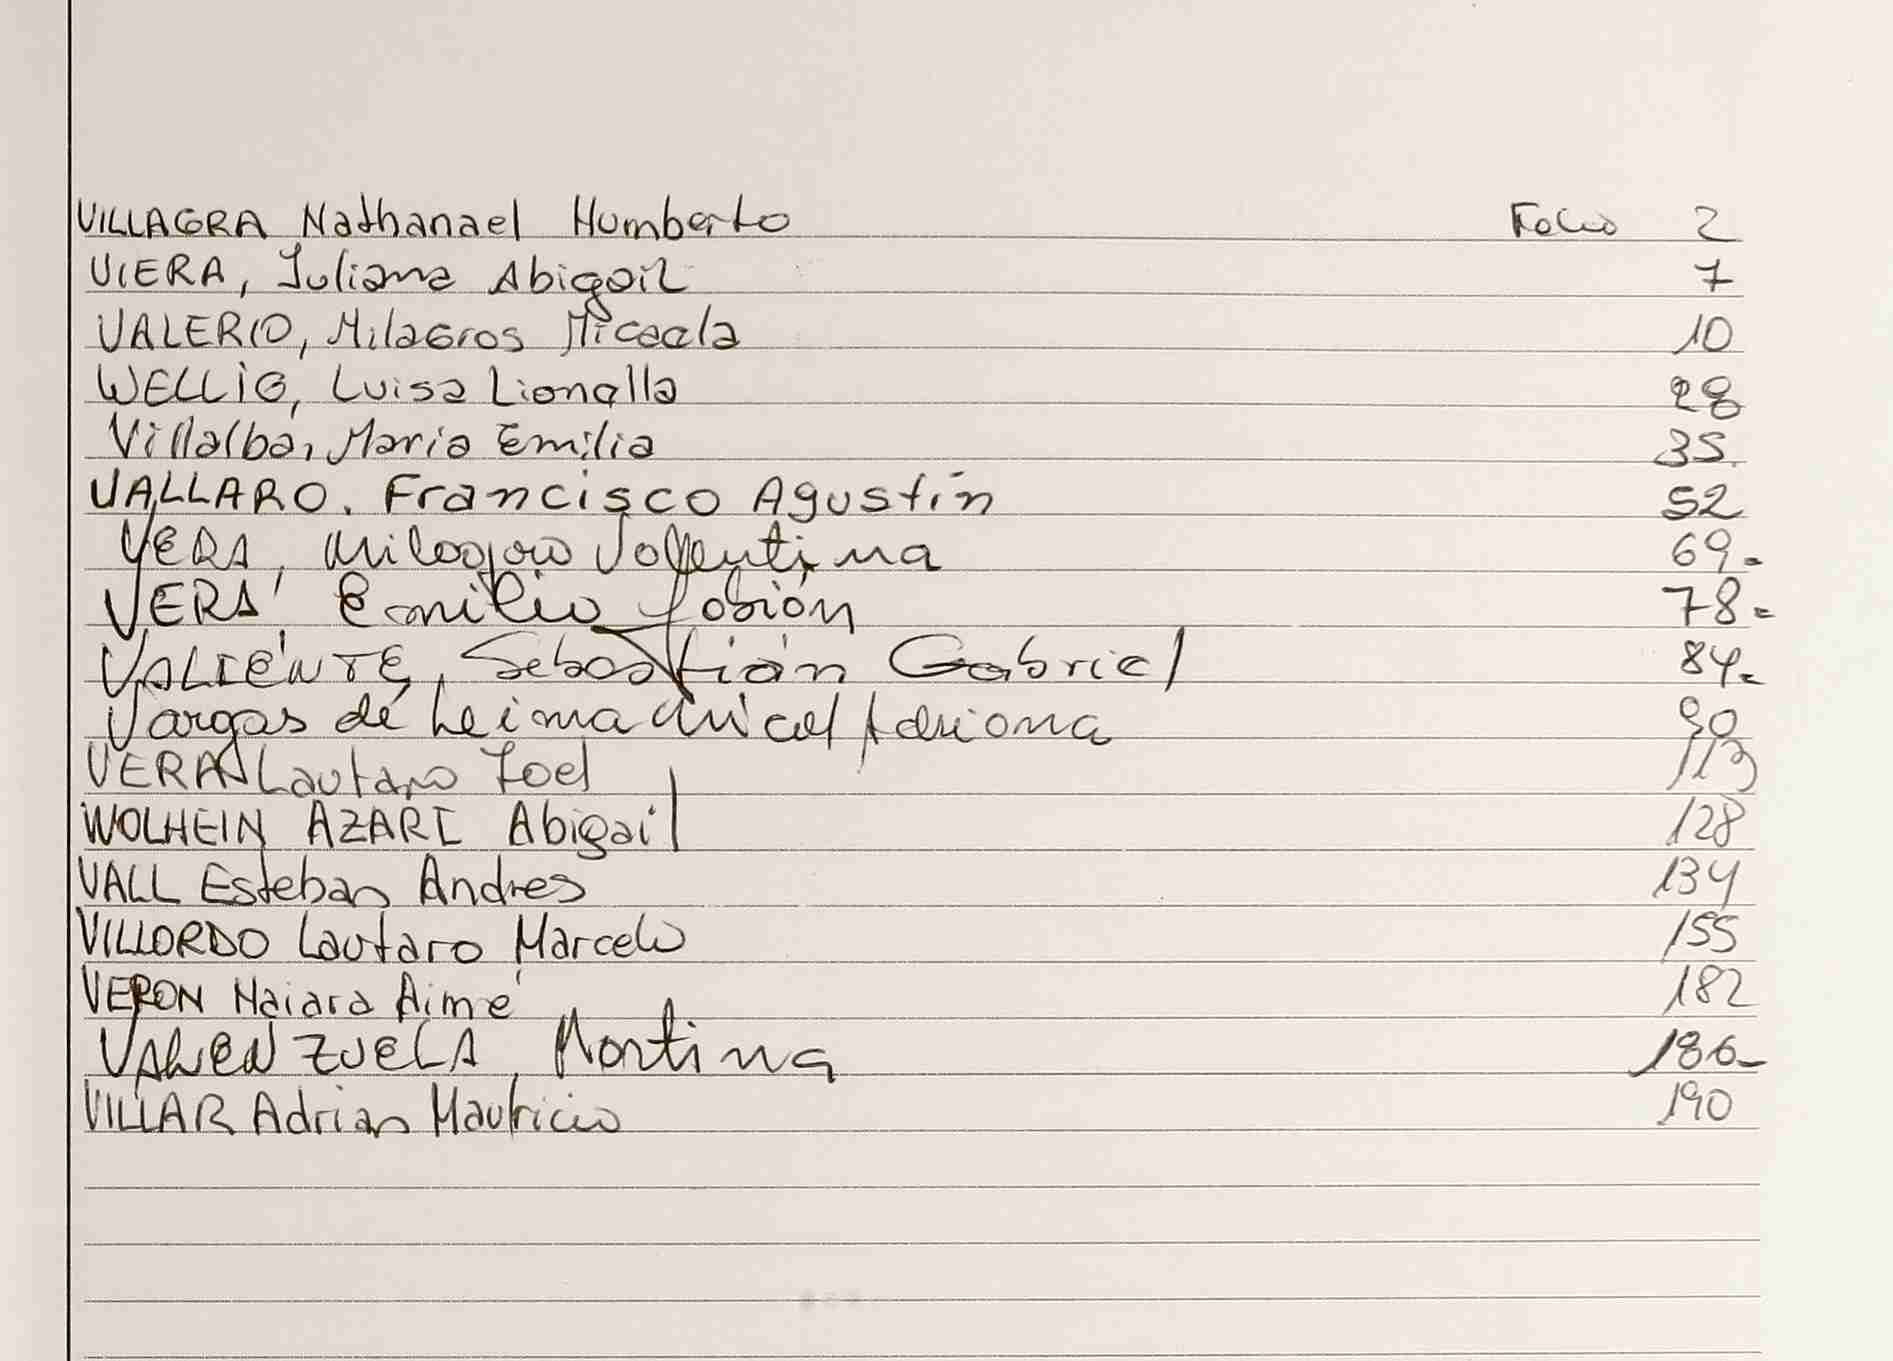 VILLAGRA Nathanael Humberto Folio 2
VIERA, Juliana Abigail 7
VALERIO, Milagros Micaela 10
WELLIG, Luisa Lionella 28
Villalba, María Emilia 35
VALLARO. Francisco Agustín 52
VERA, Milagros Vallentina 69-
VERA Emilio Fabián 78-
VALIENTE, Sebastián Gabriel 84-
Vargas de Leima Micael Adriana 90
VERA Lautaro Joel 113
WOLHEIN AZARI Abigail 128
VALL Esteban Andres 134
VILLORDO Lautaro Marcelo 155
VERON Naiara Aimé 182
VALENZUELA, Martina 186-
VILLAR Adrian Mauricio 190